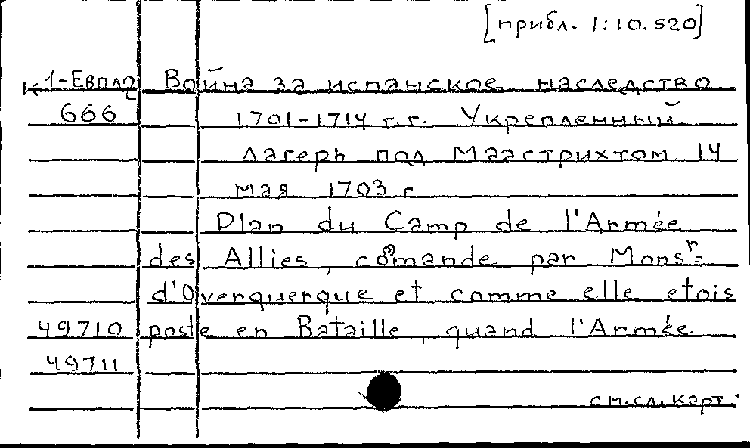 [прибл. 1:10.520]
К 1-Евпл2 Война за испанское наследство
666 1701-1714 г.г. Укрепленный
лагерь под Маастрихтом 14
мая 1703 г
Plan du Camp de l'Armée
des Allies, comande par Monsr=
d'Overquerque et comme elle etois
49710 poste en Bataille, quand l'Armée
49711
см. сл. карт.